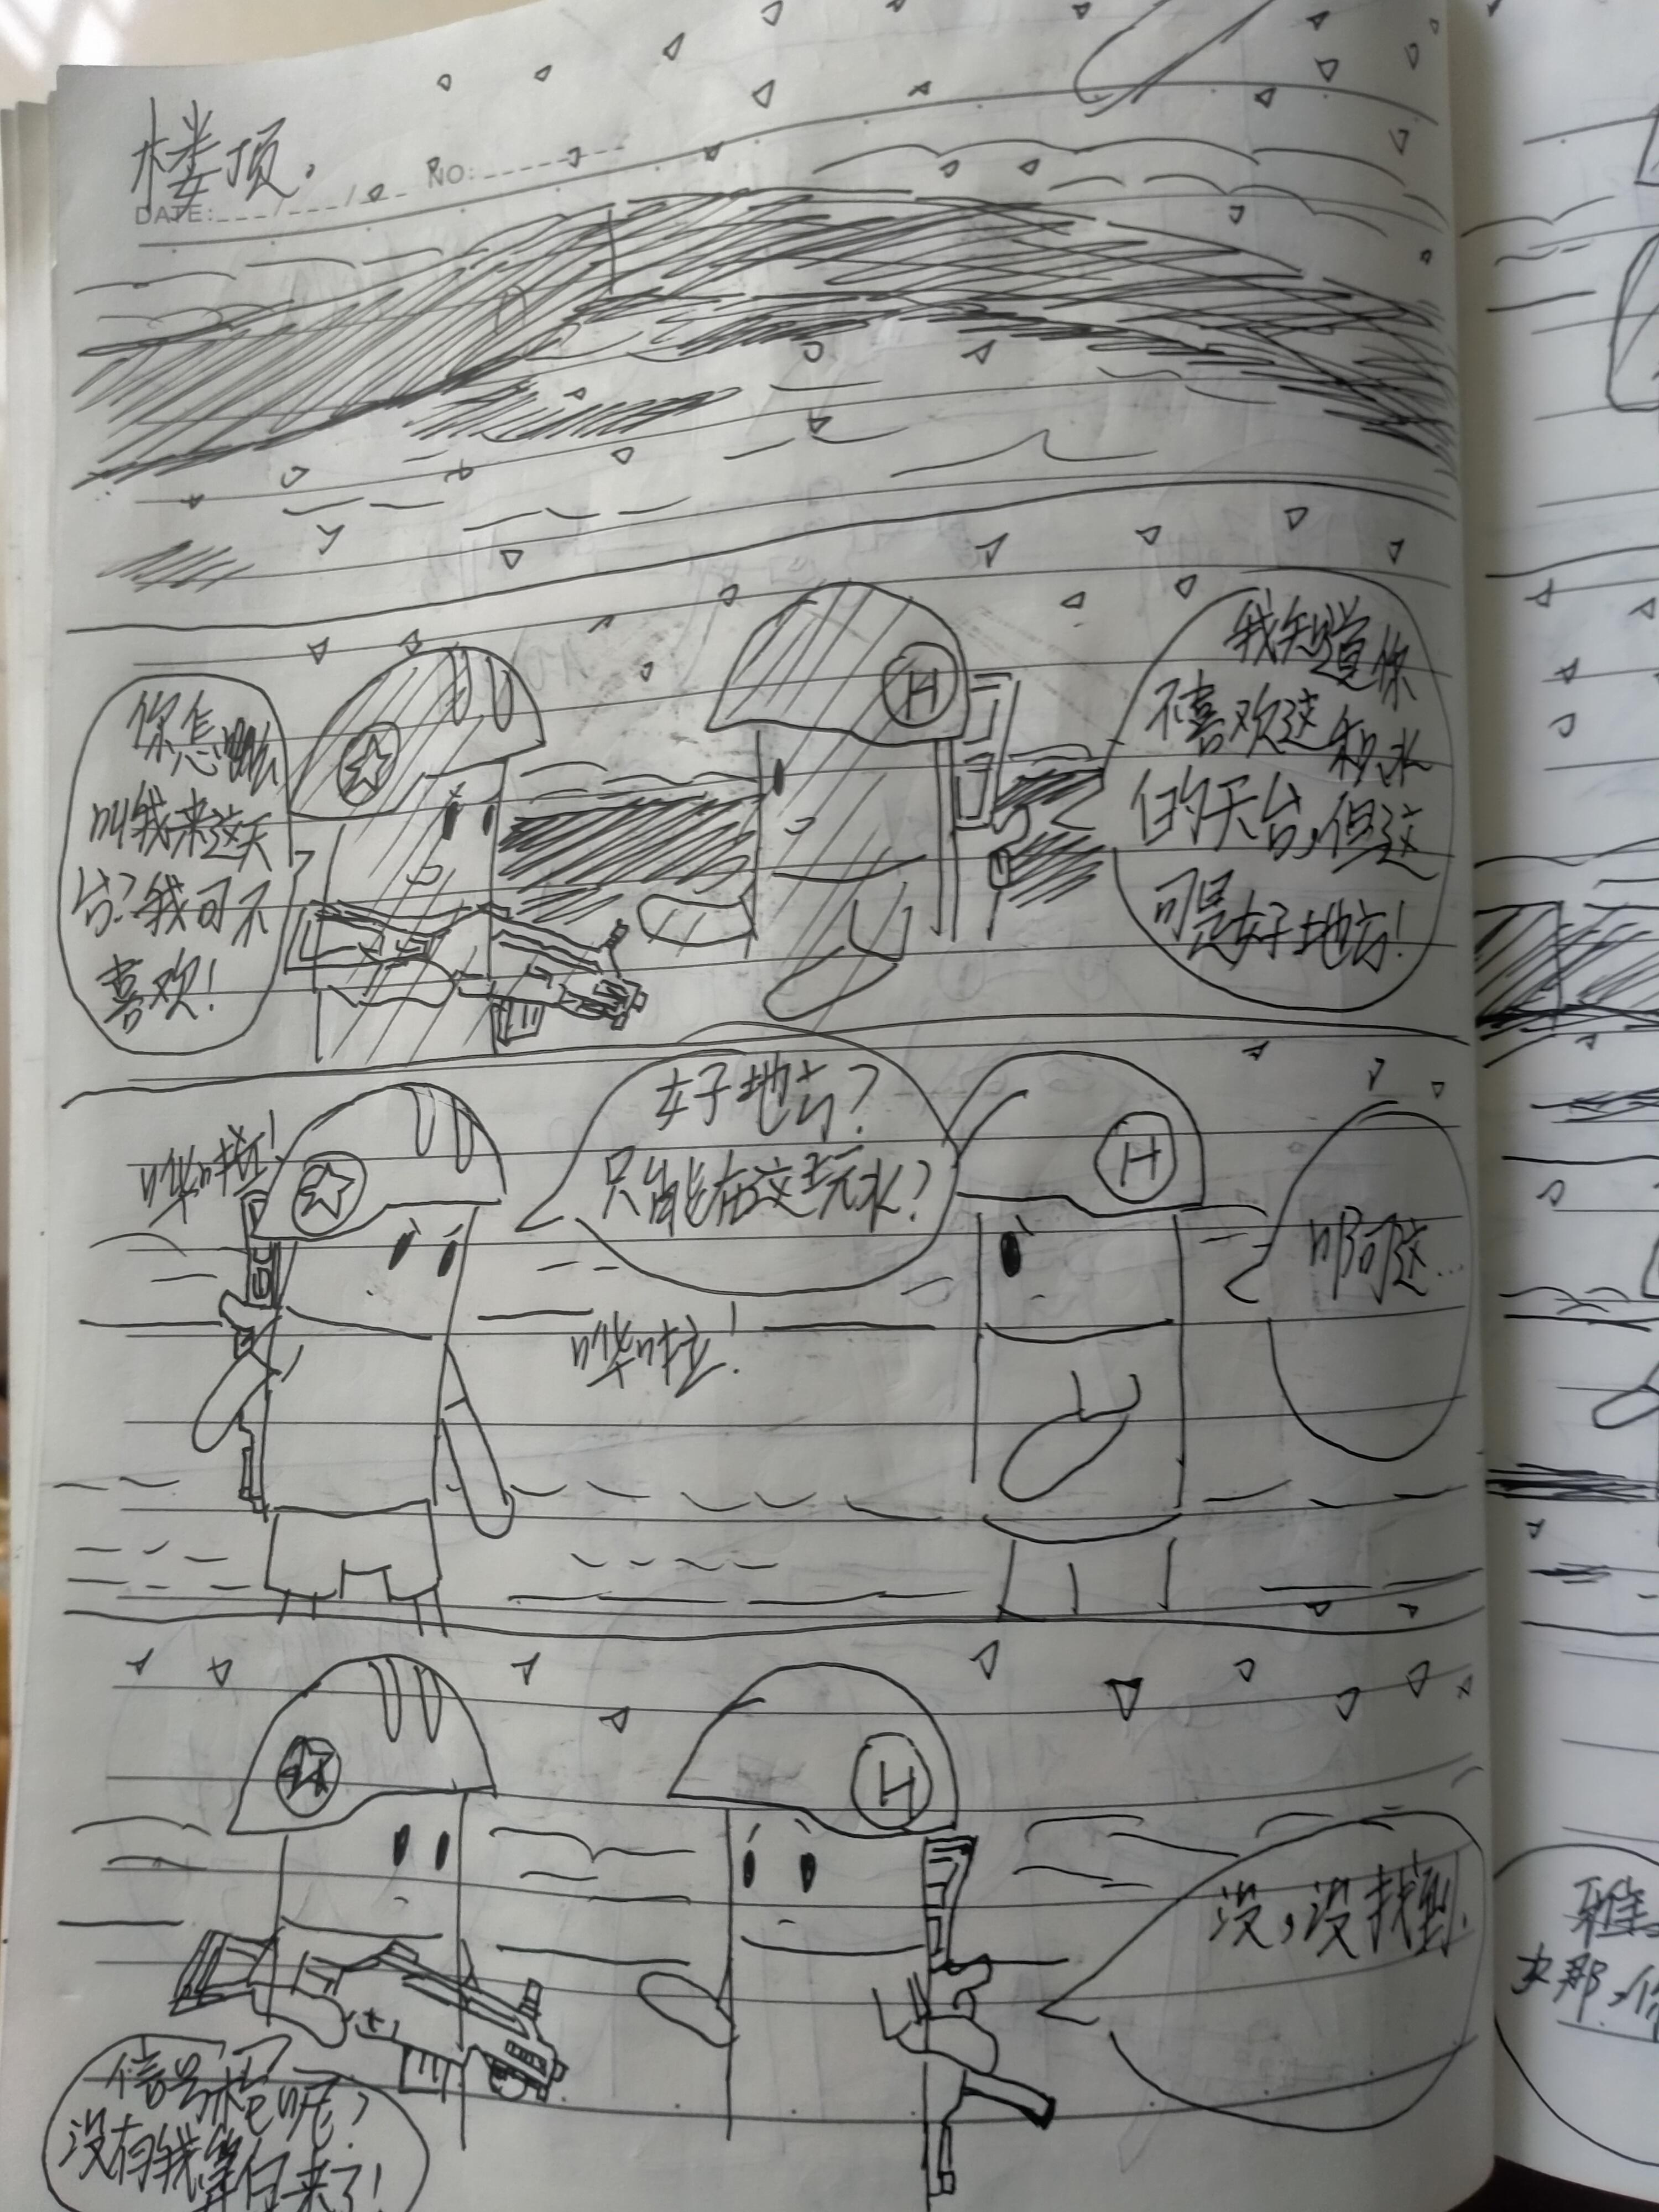 楼顶.
NO:
DATE:
你怎么
叫我来这天
台?我可不
喜欢!
H
我知道你
不喜欢这积水
的天台,但这
可是好地方!
哗啦!
好地方?
只能在这玩水?
H
哗啦!
啊这...
H
没,没找到.
信号枪呢?
没有我算白来了!